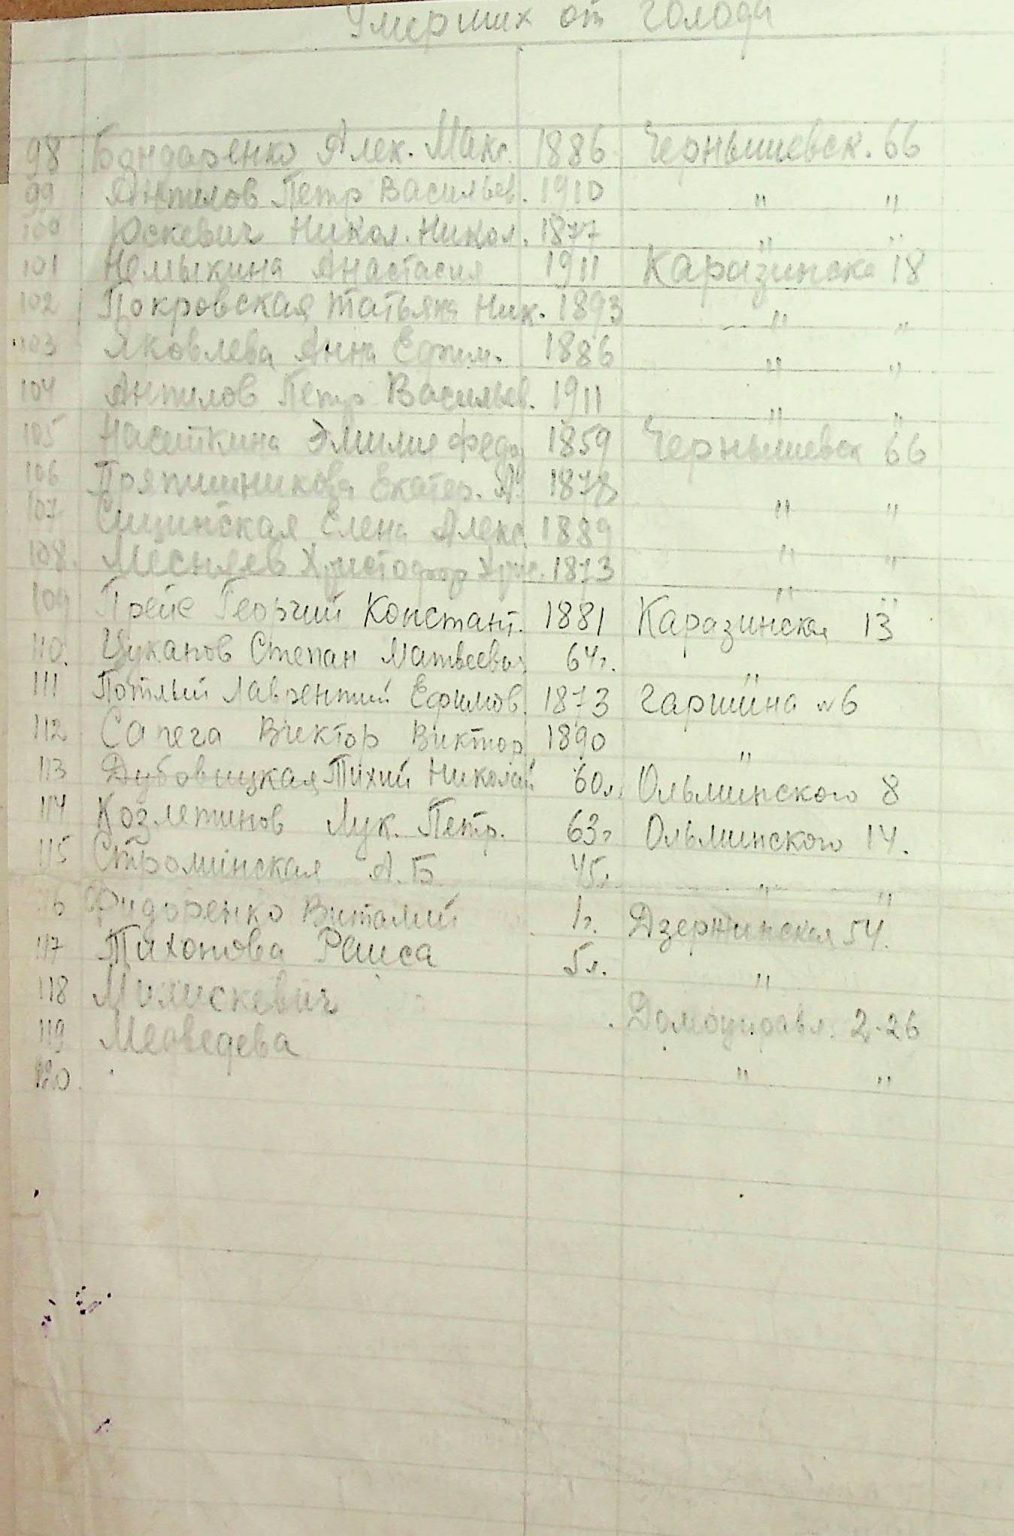 Умерших от голода
98 Бондаренко Алек. Макс. 1886 Чернышевск. 66
99 Антилов Петр Васильев. 1910 " "
100 Юскевич Никол. Никол. 1877 " "
101 Немыкина Анастасия 1911 Каразинска 18
102 Покровская Татьяна Ник. 1893 " "
103 Яковлева Анна Ефим. 1886 " "
104 Анпилов Петр Васильев. 1911 " "
105 Наситкина Эмилия Федо 1859 Чернышевск 66
106 Екатер. 1878 " "
107 Сицинская Елена Алекс. 1889 " "
108. Месняев Христофор 1873 " "
109 Прейс Георгий Констант. 1881 Каразинская 13
110. Цуканов Степан Матвеевич 64г. "
111 Потлый Лаврентий Ефимов. 1873 Гаршина №6
112 Сапега Виктор Виктор 1890 "
113 Дубовицкая Тихий Николай 60л. Ольминского 8
114 Козлетинов Лук. Петр. 63г Ольминского 14.
115 Строминская А.Б 45л. " "
116 Фидоренко Виталий 1г. Дзержинская 54.
117 Тихонова Раиса 5л. "
118 Милискевич Домоуправл. 2-26
119 Медведева " "
120.